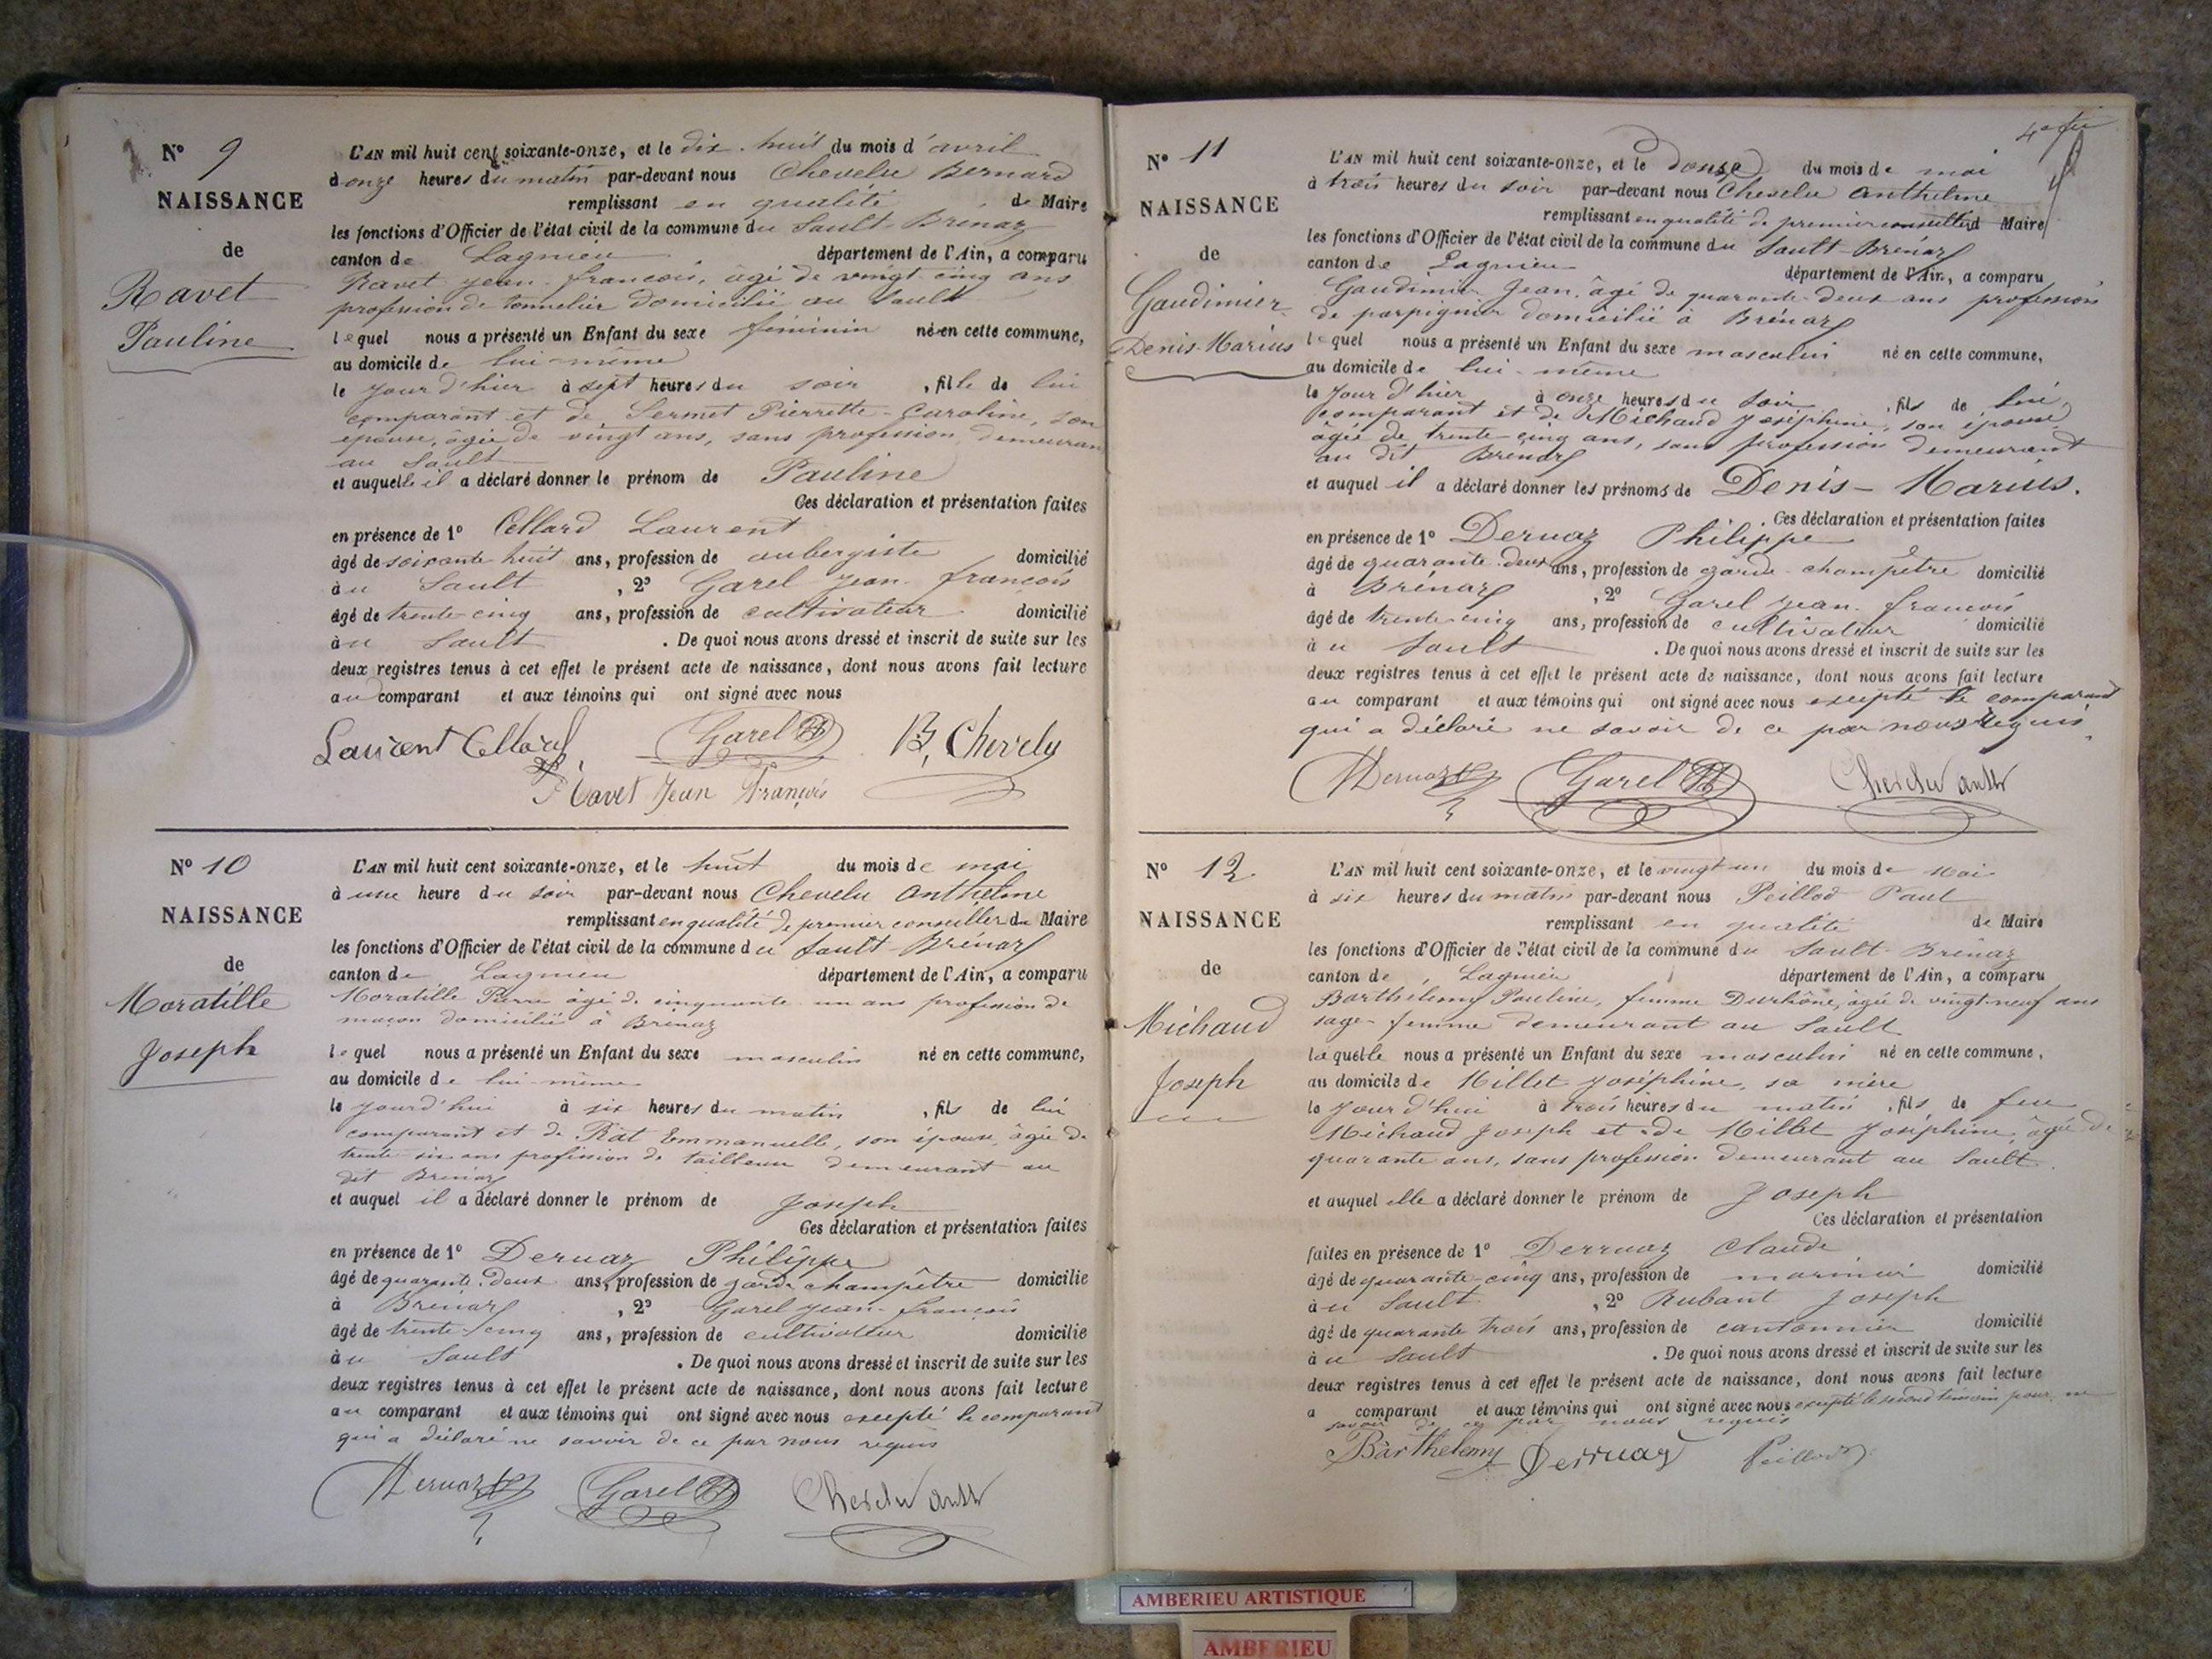 N° 9
NAISSANCE
de
Ravet
Pauline
L'AN mil huit cent soixante-onze, et le dix-huit du mois d'avril
à onze heures du matin par-devant nous Chevelu Bernard
remplissant en qualité de Maire
les fonctions d'Officier de l'état civil de la commune du Sault-Brénaz
canton de Lagnieu département de l'Ain, a comparu
Ravet Jean-François, âgé de vingt-cinq ans
profession de tonnelier domicilié au Sault
lequel nous a présenté un Enfant du sexe féminin né en cette commune,
au domicile de lui-même
le jour d'hier à sept heures du soir, fille de lui
comparant et de Sermet Pierrette-Caroline, son
épouse, âgée de vingt ans, sans profession, demeurant
au Sault
et auquelle il a déclaré donner le prénom de Pauline
Ces déclaration et présentation faites
en présence de 1° Cellard Laurent
âgé de soixante-huit ans, profession de aubergiste domicilié
au Sault, 2° Garel Jean-François
âgé de trente-cinq ans, profession de cultivateur domicilié
au Sault. De quoi nous avons dressé et inscrit de suite sur les
deux registres tenus à cet effet le présent acte de naissance, dont nous avons fait lecture
au comparant et aux témoins qui ont signé avec nous
Laurent Cellard Garel B. Chevelu
Ravet Jean François
N° 10
NAISSANCE
de
Moratille
Joseph
L'AN mil huit cent soixante-onze, et le huit du mois de mai
à une heure du soir par-devant nous Chevelu Anthelme
remplissant en qualité de premier conseiller du Maire
les fonctions d'Officier de l'état civil de la commune du Sault-Brénaz
canton de Lagnieu département de l'Ain, a comparu
Moratille Pierre âgé de cinquante-un ans profession de
maçon domicilié à Brénaz
lequel nous a présenté un Enfant du sexe masculin né en cette commune,
au domicile de lui-même
le jourd'hui à six heures du matin, fils de lui
comparant et de Rat Emmanuelle, son épouse, âgée de
trente-six ans profession de tailleuse demeurant au
dit Brénaz
et auquel il a déclaré donner le prénom de Joseph
Ces déclaration et présentation faites
en présence de 1° Dervaz Philippe
âgé de quarante-deux ans, profession de garde champêtre domicilié
à Brénaz, 2° Garel Jean-François
âgé de trente-cinq ans, profession de cultivateur domicilié
au Sault. De quoi nous avons dressé et inscrit de suite sur les
deux registres tenus à cet effet le présent acte de naissance, dont nous avons fait lecture
au comparant et aux témoins qui ont signé avec nous excepté le comparant
qui a déclaré ne savoir de ce par nous requis
Dervaz Garel Chevelu Anth
4e
N° 11
NAISSANCE
de
Gaudimier
Denis-Marius
L'AN mil huit cent soixante-onze, et le douze du mois de mai
à trois heures du soir par-devant nous Chevelu Anthelme
remplissant en qualité de premier conseiller d Maire
les fonctions d'Officier de l'état civil de la commune du Sault-Brénaz
canton de Lagnieu département de l'Ain, a comparu
Gaudimier Jean, âgé de quarante-deux ans profession
de parpignier domicilié à Brénaz
lequel nous a présenté un Enfant du sexe masculin né en cette commune,
au domicile de lui-même
le jour d'hier à onze heures du soir, fils de lui
comparant et de Michaud Joséphine, son épouse
âgée de trente-cinq ans, sans profession demeurant
au dit Brénaz
et auquel il a déclaré donner les prénoms de Denis-Marius.
Ces déclaration et présentation faites
en présence de 1° Dervaz Philippe
âgé de quarante-deux ans, profession de garde-champêtre domicilié
à Brénaz, 2° Garel Jean-François
âgé de trente-cinq ans, profession de cultivateur domicilié
au Sault. De quoi nous avons dressé et inscrit de suite sur les
deux registres tenus à cet effet le présent acte de naissance, dont nous avons fait lecture
au comparant et aux témoins qui ont signé avec nous excepté le comparant
qui a déclaré ne savoir de ce par nous requis.
Dervaz Garel Chevelu Anth
N° 12
NAISSANCE
de
Michaud
Joseph
L'AN mil huit cent soixante-onze, et le vingt-un du mois de Mai
à six heures du matin par-devant nous Peillod Paul
remplissant en qualité de Maire
les fonctions d'Officier de l'état civil de la commune du Sault-Brénaz
canton de Lagnieu département de l'Ain, a comparu
Barthélemy Pauline, femme Durhône, âgée de vingt-neuf ans
sage-femme demeurant au Sault
laquelle nous a présenté un Enfant du sexe masculin né en cette commune,
au domicile de Millet Joséphine, sa mère
le jour d'hui à trois heures du matin, fils de feu
Michaud Joseph et de Millet Joséphine, âgée de
quarante ans, sans profession demeurant au Sault.
et auquel elle a déclaré donner le prénom de Joseph
Ces déclaration et présentation
faites en présence de 1° Derruaz Claude
âgé de quarante-cinq ans, profession de marinier domicilié
au Sault, 2° Rubant Joseph
âgé de quarante trois ans, profession de cantonnier domicilié
au Sault. De quoi nous avons dressé et inscrit de suite sur les
deux registres tenus à cet effet le présent acte de naissance, dont nous avons fait lecture
a comparant et aux témoins qui ont signé avec nous excepté le second témoin pour ne
savoir de ce par nous requis
Barthelemy Derruaz Peillod
AMBERIEU ARTISTIQUE
AMBERIEU